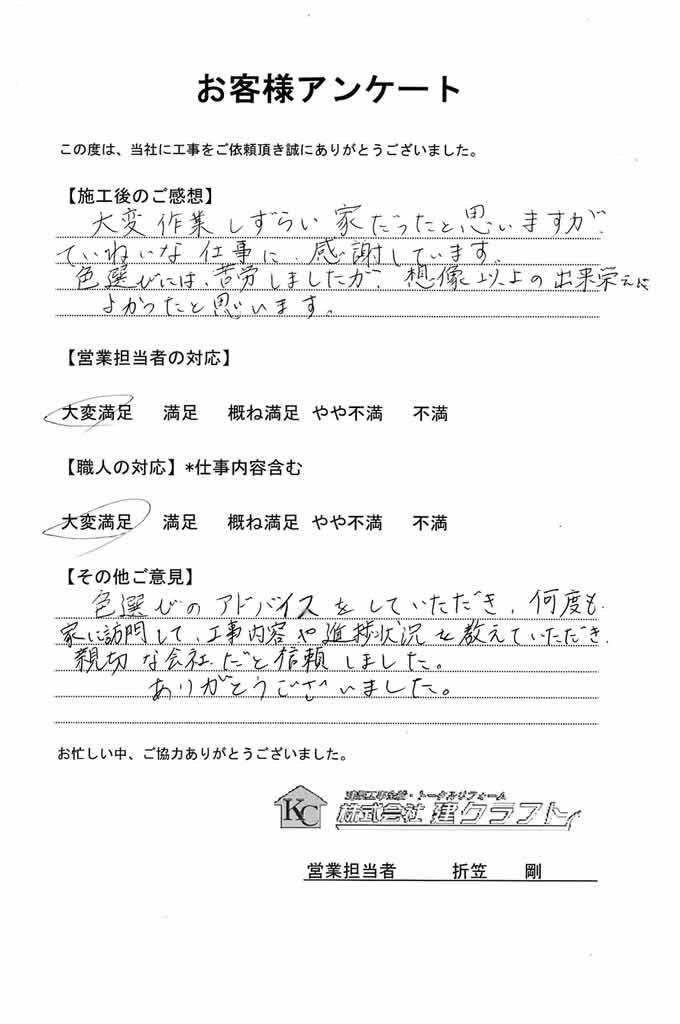 お客様アンケート
この度は、当社に工事をご依頼頂き誠にありがとうございました。
【施工後のご感想】
大変作業しずらい家だったと思いますが、
ていねいな仕事に、感謝しています。
色選びには、苦労しましたが、想像以上の出来栄えで
よかったと思います。
【営業担当者の対応】
大変満足 満足 概ね満足 やや不満 不満
【職人の対応】*仕事内容含む
大変満足 満足 概ね満足 やや不満 不満
【その他ご意見】
色選びのアドバイスをしていただき、何度も
家に訪問して、工事内容や進捗状況を教えていただき、
親切な会社だと信頼しました。
ありがとうございました。
お忙しい中、ご協力ありがとうございました。
KC
・トータルリフォーム
株式会社 建クラフト
営業担当者 折笠 剛